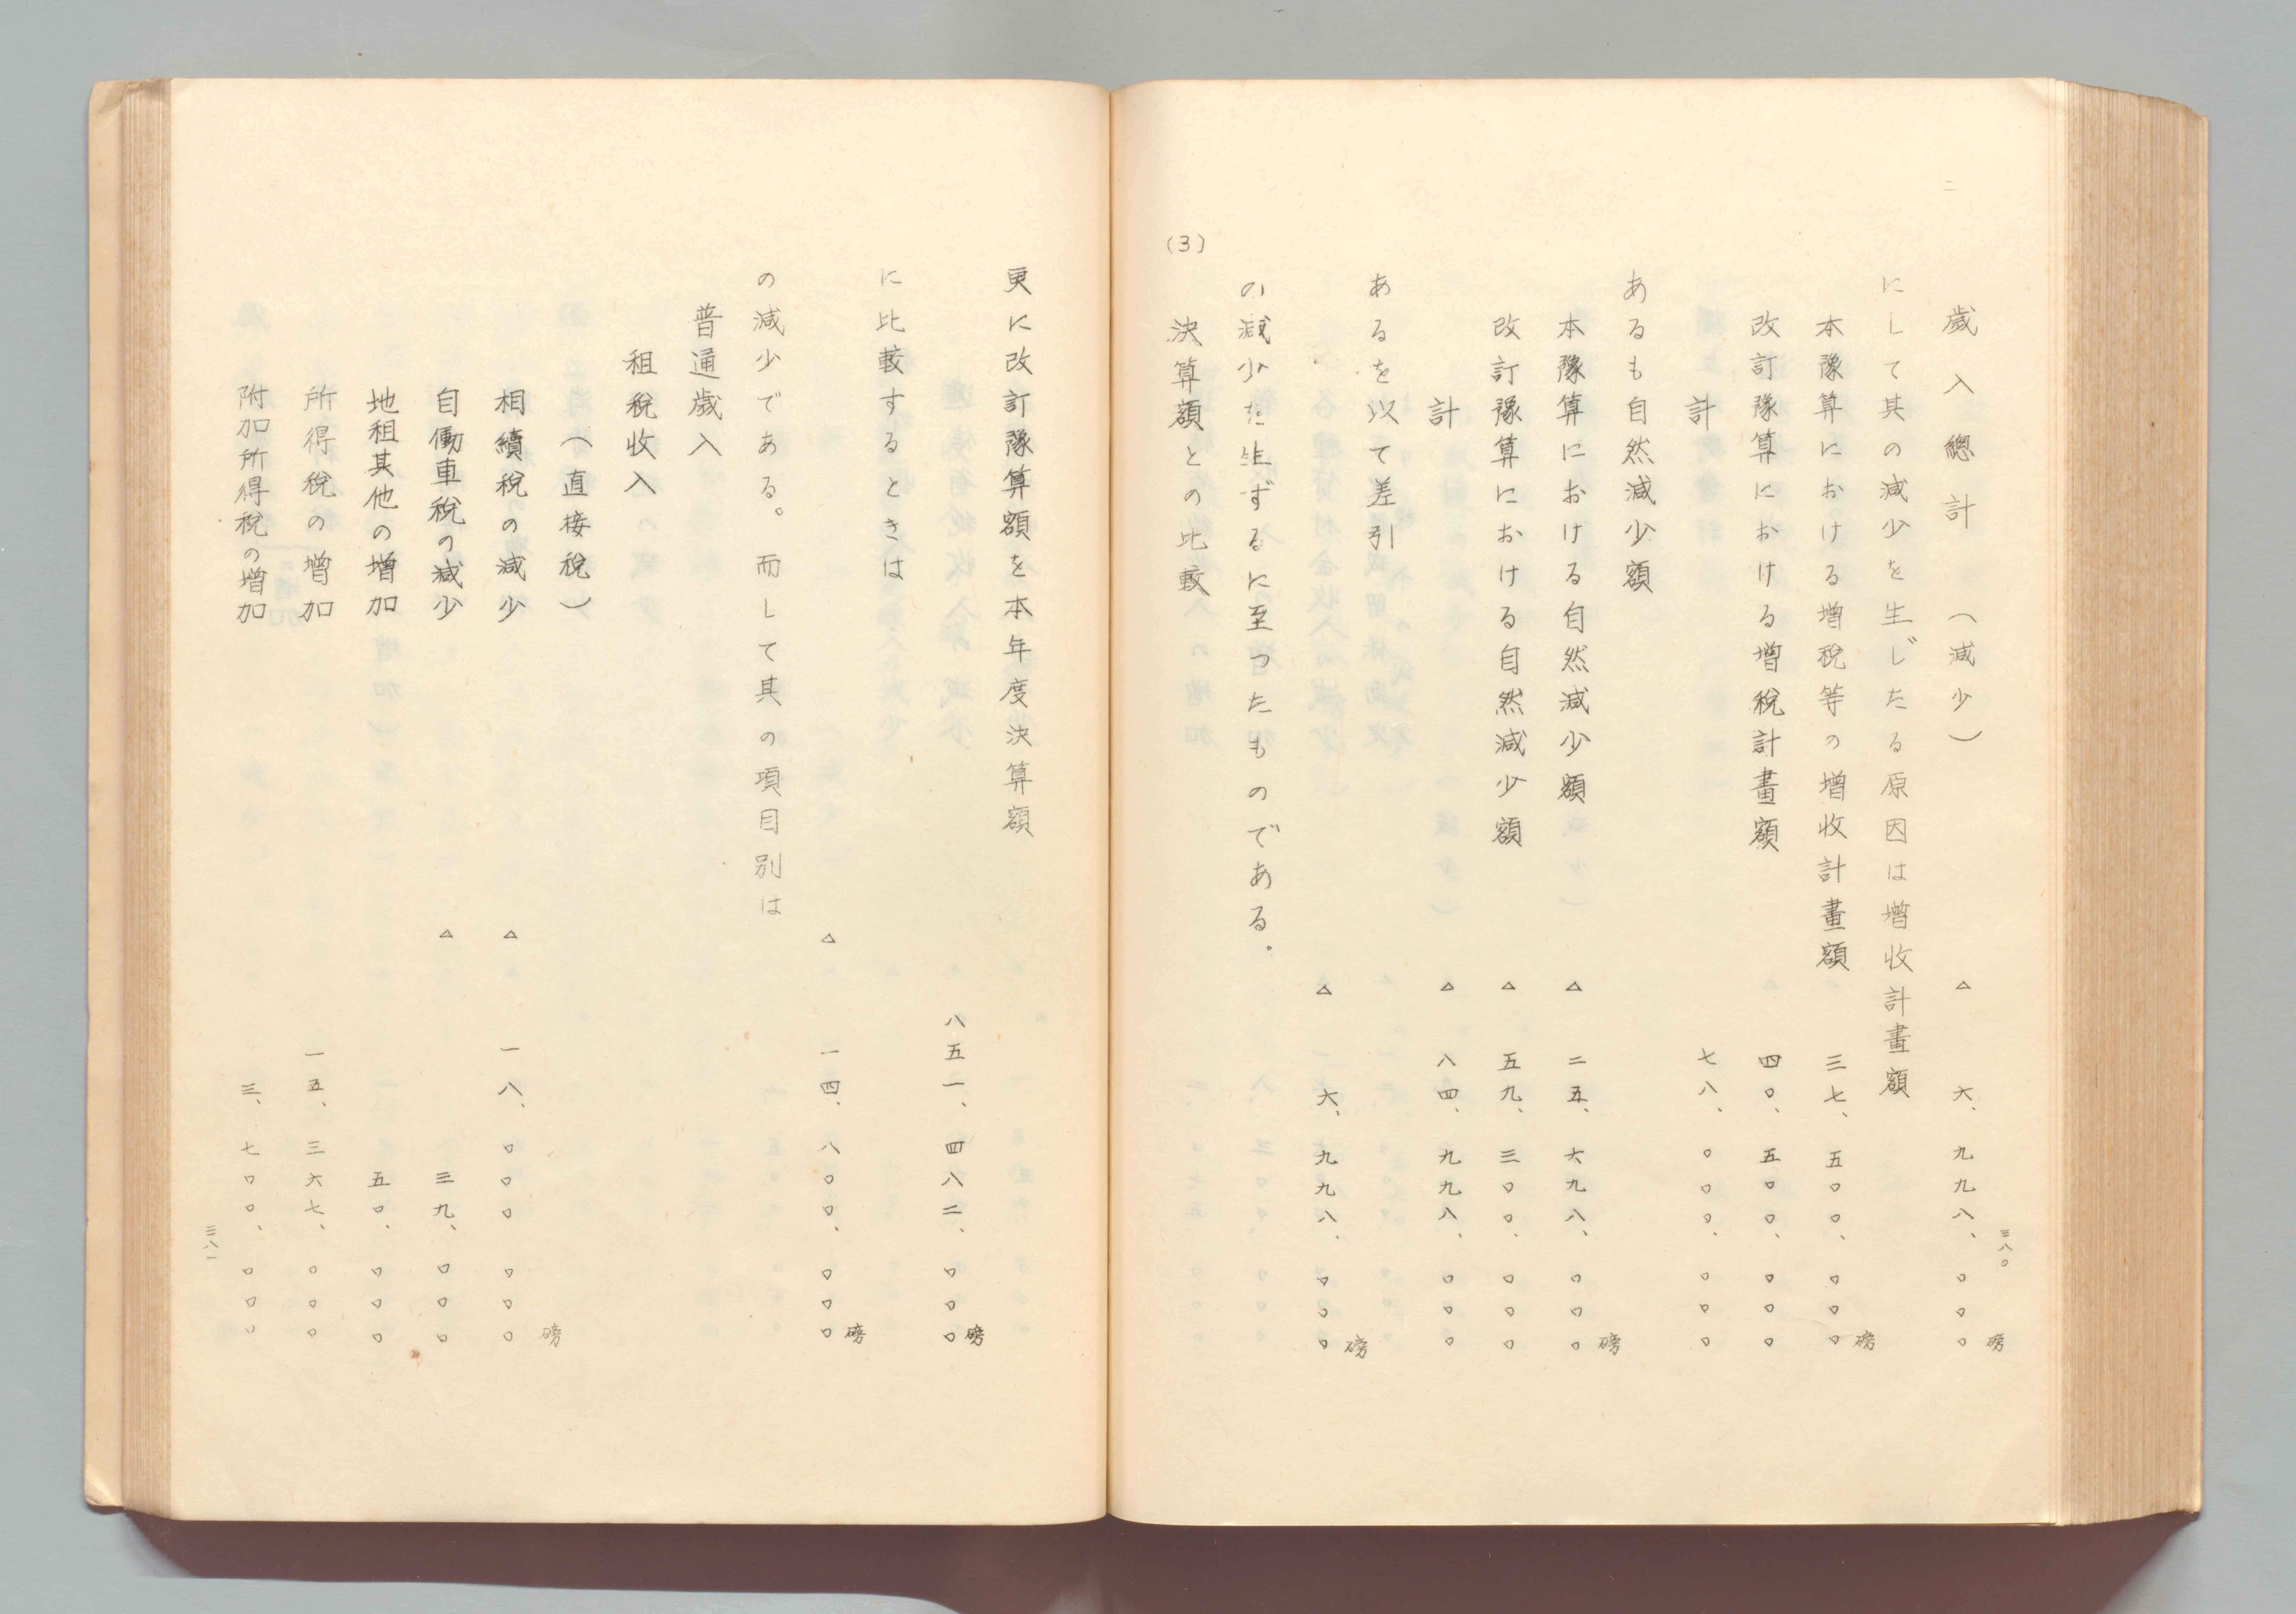 歲入總計（減少）　△　六、九九八、〇〇〇磅
にして其の減少を生じたる原因は增收計畫額
本豫算における增稅等の增收計畫額　三七、五〇〇、〇〇〇磅
改訂豫算における增稅計畫額　四〇、五〇〇、〇〇〇
計　七八、〇〇〇、〇〇〇
あるも自然減少額
本豫算における自然減少額　△　二五、六九八、〇〇〇磅
改訂豫算における自然減少額　△　五九、三〇〇、〇〇〇
計　△　八四、九九八、〇〇〇
あるを以て差引
△　六、九九八、〇〇〇磅
の減少を生ずるに至つたものである。
(3)　決算額との比較
三八〇
更に改訂豫算額を本年度決算額
八五一、四八二、〇〇〇磅
に比較するときは
△　一四、八〇〇、〇〇〇磅
の減少である。而して其の項目別は
普通歲入
租稅收入
（直接稅）
相續稅の減少　△　一八、〇〇〇、〇〇〇磅
自働車稅の減少　△　三九、〇〇〇
地租其他の增加　五〇、〇〇〇
所得稅の增加　一五、三六七、〇〇〇
附加所得稅の增加　三、七〇〇、〇〇〇
三八一